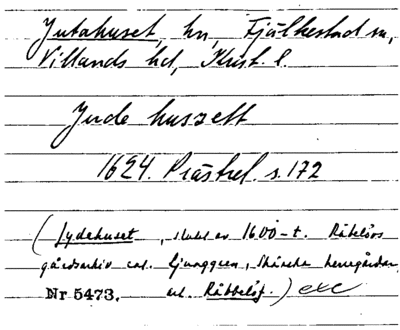 Jutahuset, hn, Fjälkestad sn,
Villands hd, Krist. l.
Jude hussett
1624. Prästrel. s. 172
(Jydehuset, slutet av 1600-t. Råbelövs
gårdsarkiv cat. Ljunggren, Skånska herregårdar
Nr 5473. art. Råbbelöf.) exc